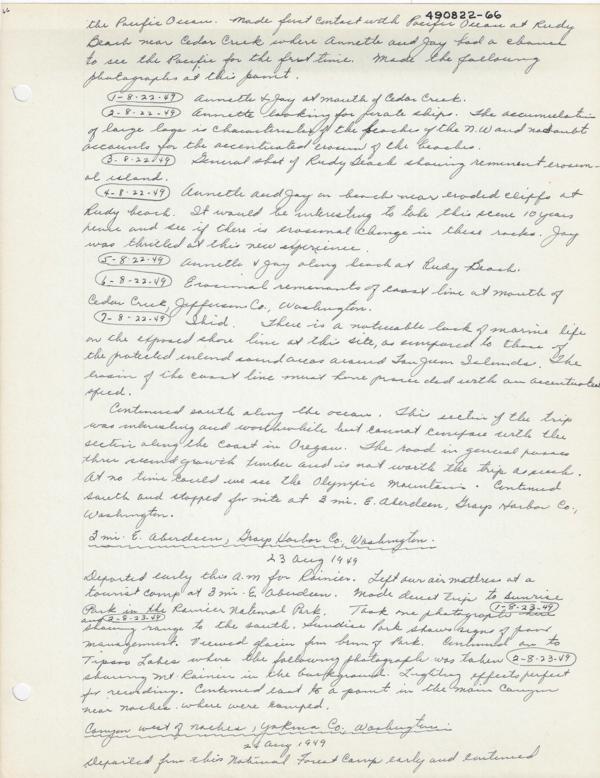 66
490822-66
the Pacific Ocean. Made first contact with Pacific Ocean at Rudy
Beach near Cedar Creek where Annette and Jay had a chance
to see the Pacific for the first time. Made the following
photographs at this point.
1-8-22-49 Annette & Jay at mouth of Cedar Creek.
2-8-22-49 Annette looking for pirate ships. The accumulation
of large logs is characteristic of the beaches of the N.W and no doubt
accounts for the accentuated erosion of the beaches.
3-8-22-49 General shot of Rudy Beach showing reminent erosion-
al island.
4-8-22-49 Annette and Jay on beach near eroded cliffs at
Rudy beach. It would be interesting to take this scene 10 years
hence and see if there is erosional change in these rocks. Jay
was thrilled at this new experience.
5-8-22-49 Annette & Jay along beach at Rudy Beach.
6-8-22-49 Erosional remenants of coast line at mouth of
Cedar Creek, Jefferson Co., Washington.
7-8-22-49 Ibid. There is a noticeable lack of marine life
on the exposed shore line at this site, as compared to those of
the protected inland sound areas around San Juan Islands. The
erosion of the coast line must have proceeded with an accentuated
speed.
Continued south along the ocean. This section of the trip
was interesting and worthwhile but cannot compare with the
section along the coast in Oregon. The road in general passes
thru second growth timber and is not worth the trip as such.
At no time could we see the Olympic Mountains. Continued
south and stopped for nite at 3 mi. E. Aberdeen, Grays Harbor Co.,
Washington.
3 mi. E. Aberdeen, Grays Harbor Co., Washington.
23 Aug 1949
Departed early this A.M for Rainier. Left our air mattress at a
tourist camp at 3 mi. E. Aberdeen. Made direct trip to sunrise
Park in the Rainier National Park. Took one photograph 1-8-23-49
and 2-8-23-49
showing range to the south. Sunrise Park shows signs of poor
management. Viewed glacier from brim of Park. Continued on to
Tipsoo Lakes where the following photograph was taken 2-8-23-49
showing Mt. Rainier in the background. Lighting effects perfect
for recording. Continued east to a point in the main Canyon
near naches where were camped.
Canyon west of naches, Yakima Co. Washington.
24 Aug 1949
Departed from this National Forest Camp early and continued